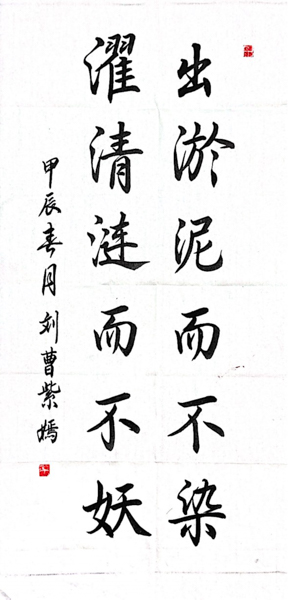 出淤泥而不染
濯清涟而不妖
甲辰春月刘曹紫嫣